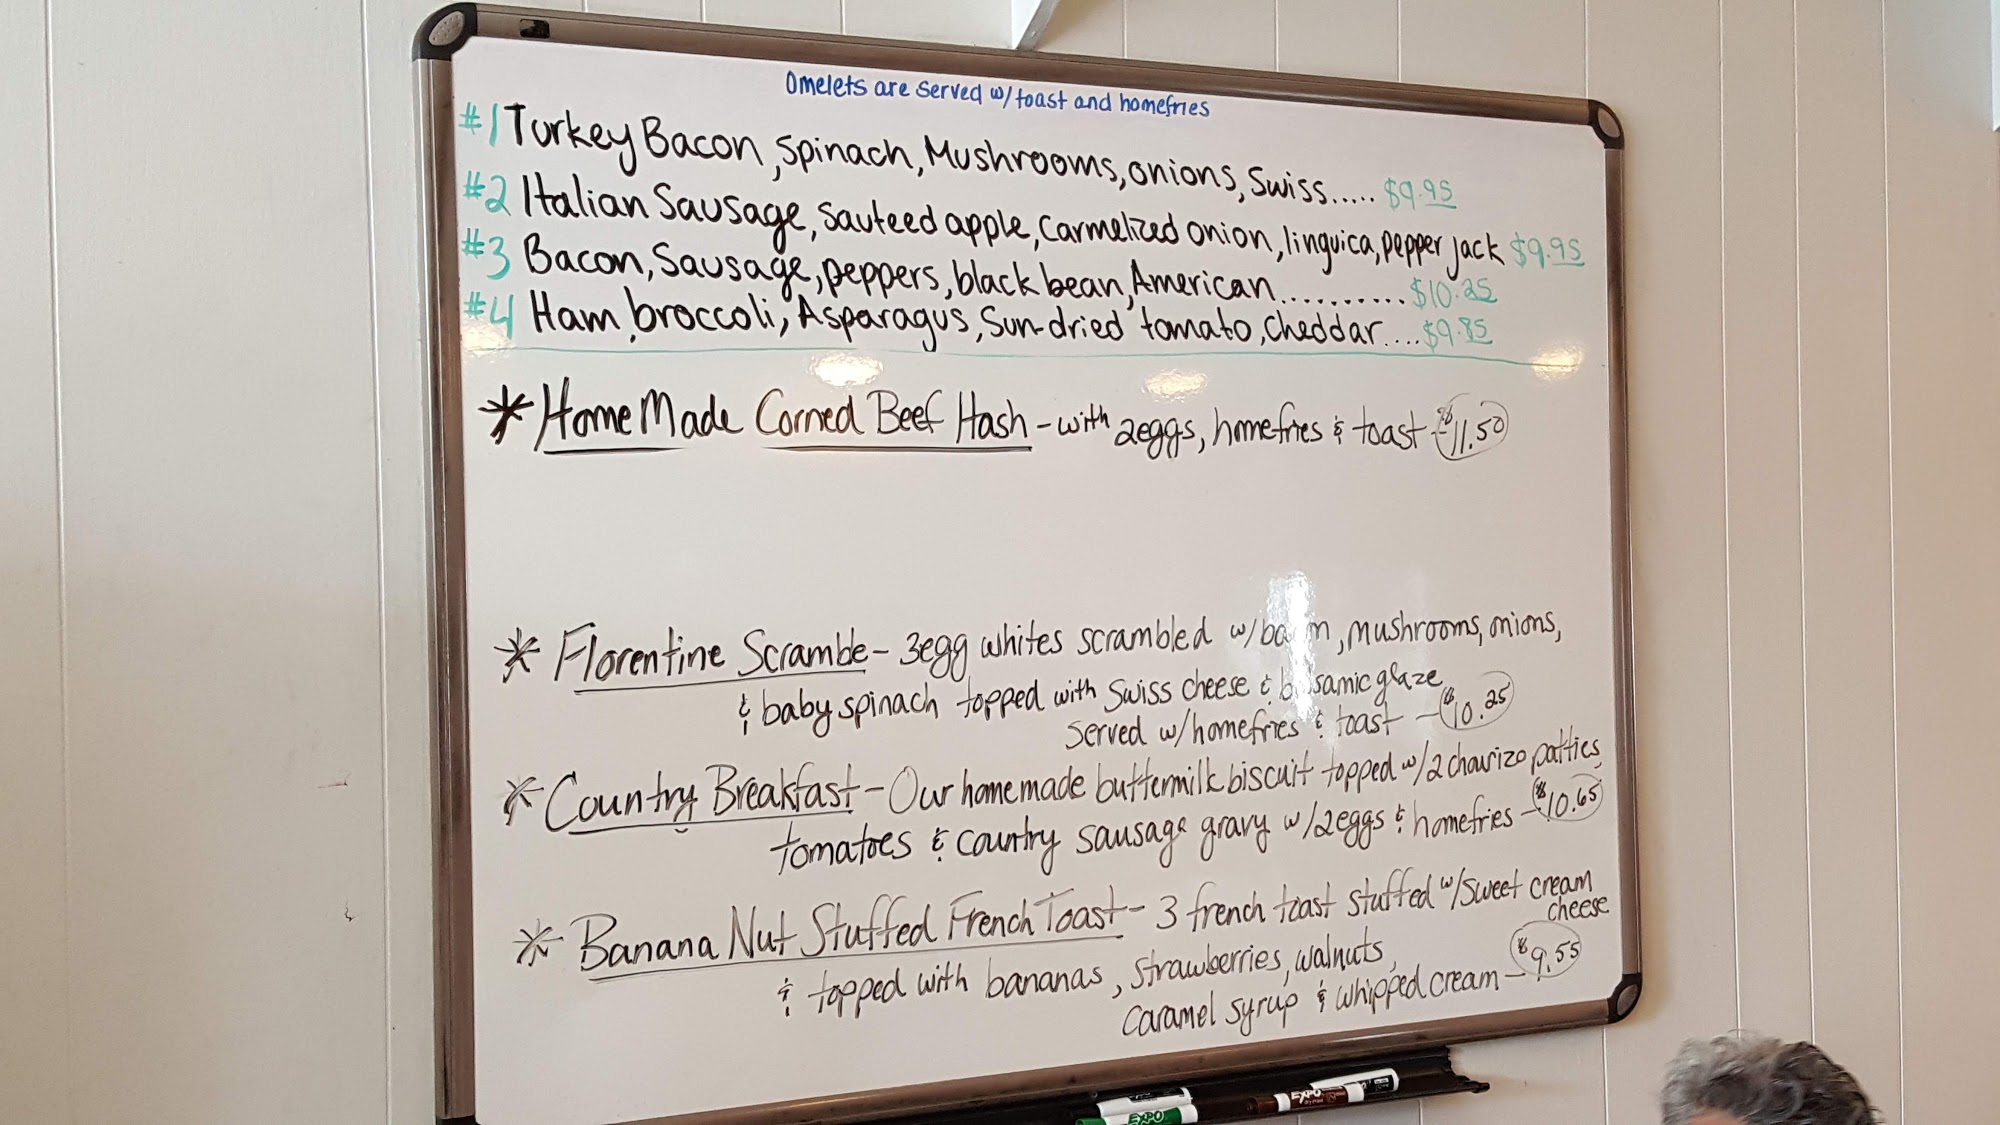 Omelets are served w/toast and homefries
#1 Turkey Bacon, Spinach, Mushrooms, onions, Swiss..... $9.95
#2 Italian Sausage, Sauteed apple, Carmelized onion, linguica, pepper jack $9.95
#3 Bacon, Sausage, peppers, black bean, American.......... $10.25
#4 Ham, broccoli, Asparagus, Sun-dried tomato, Cheddar.... $9.85
* Home Made Corned Beef Hash - with 2eggs, homefries & toast - $11.50
* Florentine Scramble - 3egg whites scrambled w/ , mushrooms, onions,
& baby spinach topped with Swiss cheese & balsamic glaze
Served w/homefries & toast - $10.25
* Country Breakfast - Our homemade buttermilk biscuit topped w/2 chourizo patties,
tomatoes & country sausage gravy w/2eggs & homefries - $10.65
* Banana Nut Stuffed French Toast - 3 french toast stuffed w/sweet cream
cheese
& topped with bananas, strawberries, walnuts,
caramel syrup & whipped cream - $9.55
EXPO
EXPO